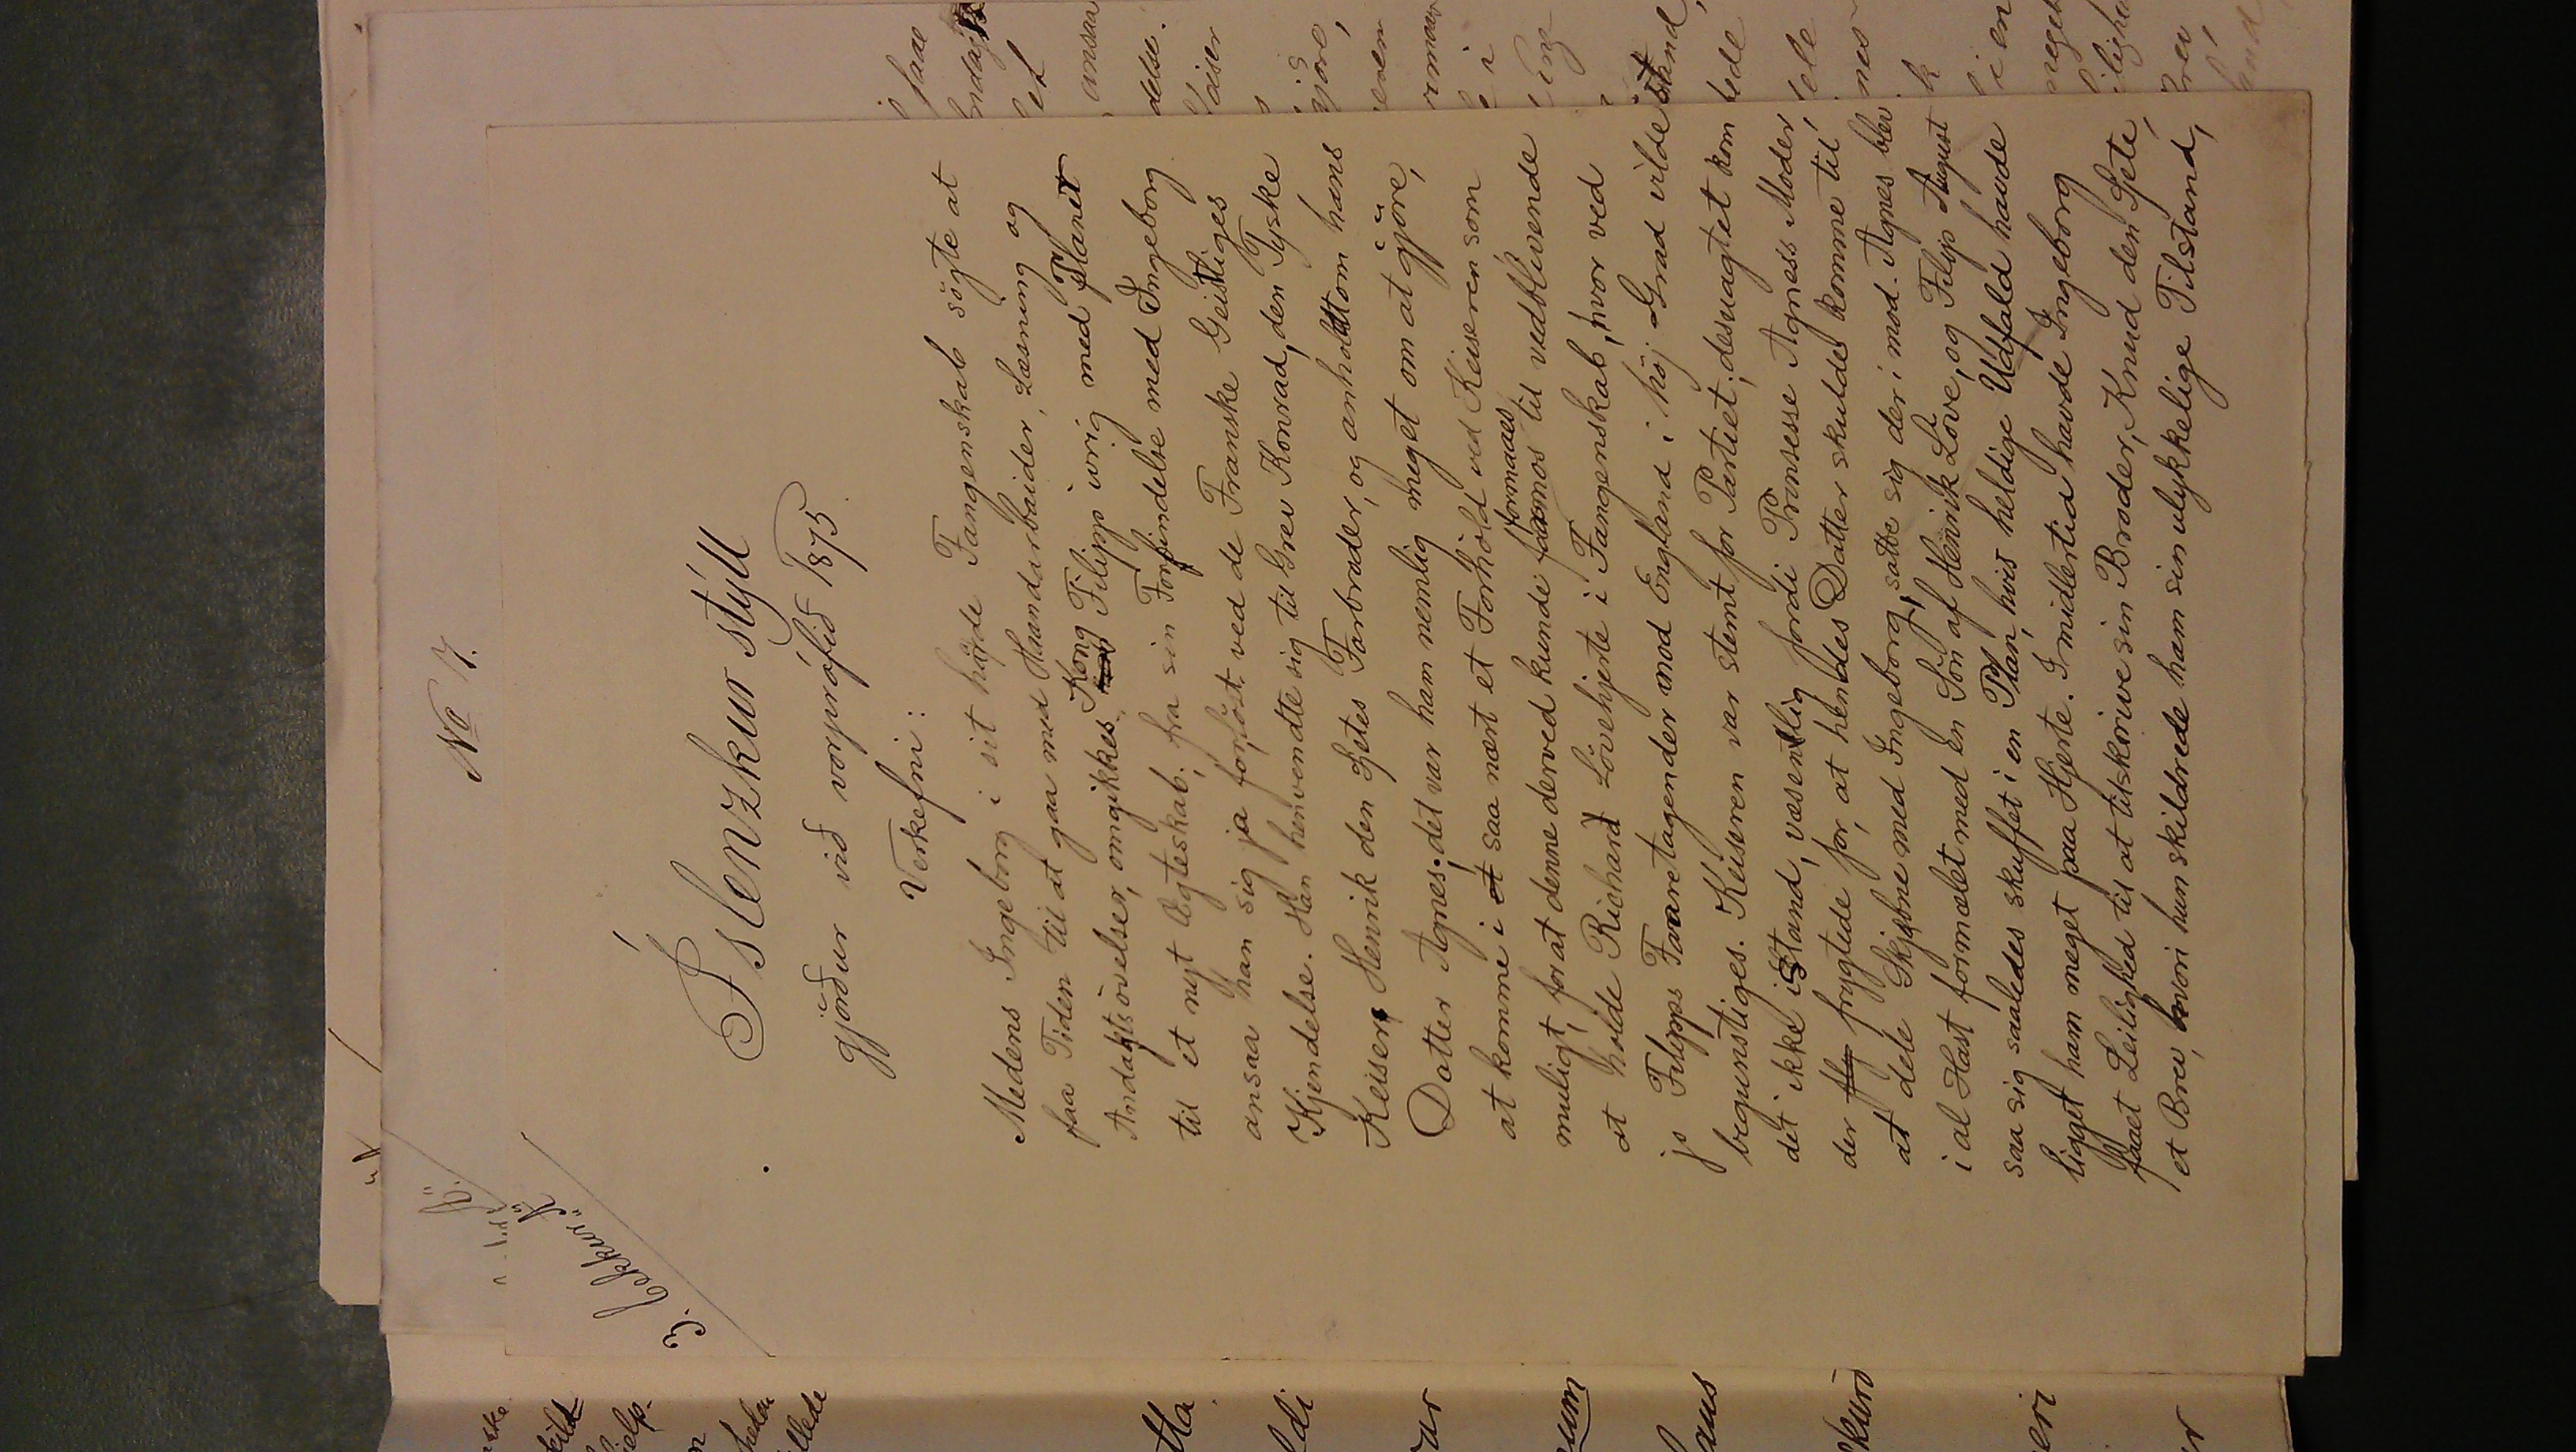 No 17.
3. bekkur "A"
Íslenzkur stýll
gjörður við vorprófið 1875.
Verkefni:
Medens Ingeborg i sit haarde Fangenskab sögte at
faa Tiden til at gaa med Haandarbeider, Læsning og
Andagtsövelser, omgikkes Kong Filipp ivrig med Planer
til et nyt Ægteskab; fra sin Forbindelse med Ingeborg
ansaa han sig ja forlöst ved de Franske Geistliges
Kjendelse. Han henvendte sig til Grev Konrad, den Tyske
Keisers Henrik den 6jetes Farbroder, og anholdt om hans
Datter Agnes; det var ham nemlig meget om at gjöre,
at komme i et saa nært et Forhold ved Keiseren som
muligt, for at denne derved kunde formaaes til vedblivende
at holde Richard Lövehjerte i Fangenskab, hvor ved
jo Filipps Foretagender mod England i höj Grad vilde
begunstiges. Keiseren var stemt for Partiet; desuagtet kom
det ikke istand, væsentlig fordi Prinsesse Agness Moder,
der frygtede for, at hendes Datter skulde komme til
at dele Skjebne med Ingeborg, satte sig der imod. Agnes blev
i al Hast formælet med en Sön af Henrik Löve, og Filip August
saa sig saaledes skuffet i en Plan, hvis heldige Udfald havde
ligget ham meget paa Hjerte. Imidlertid havde Ingeborg
faaet Leilighed til at tilskrive sin Broder, Knud den 6jete,
et Brev, hvori hun skildrede ham sin ulykkelige Tilstand,